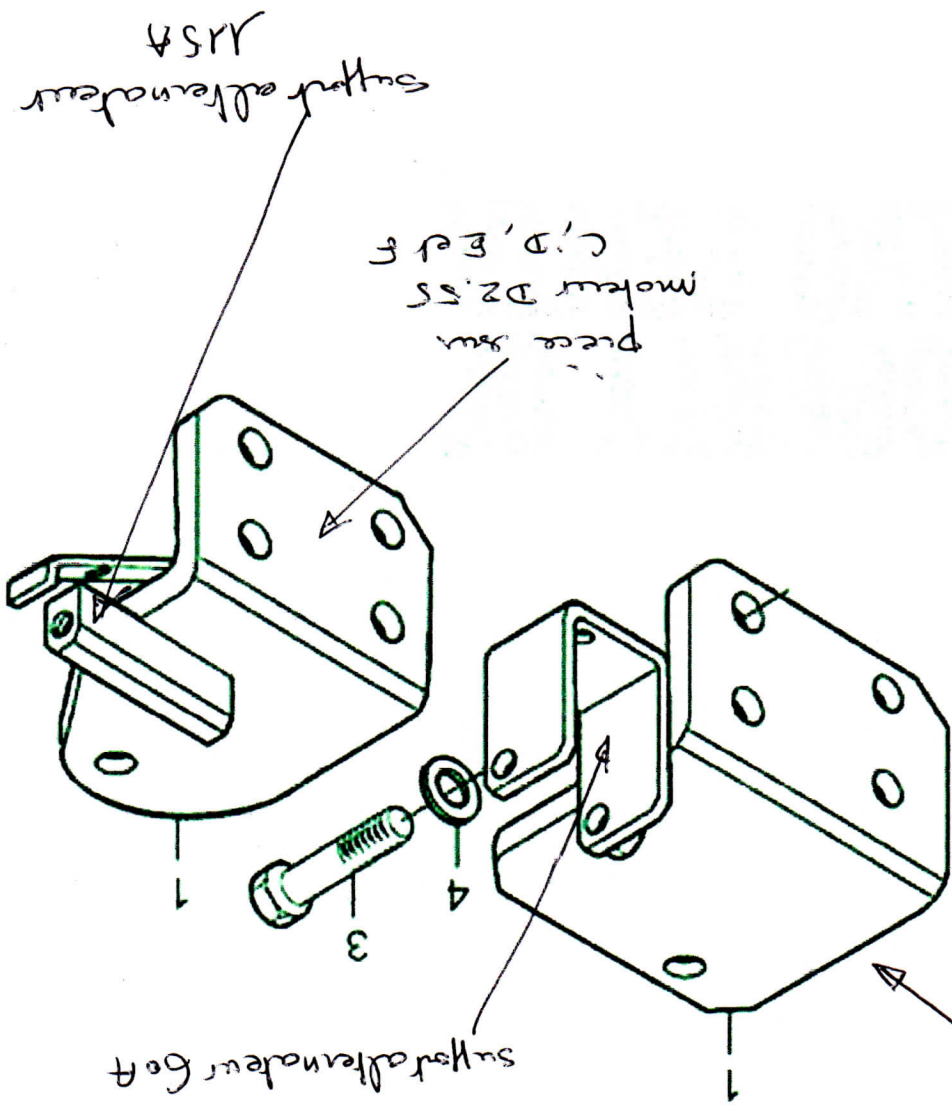 1
support alternateur 60A
3
4
1
pièce sur
moteur D2.55
C,D, E et F
support alternateur
115A